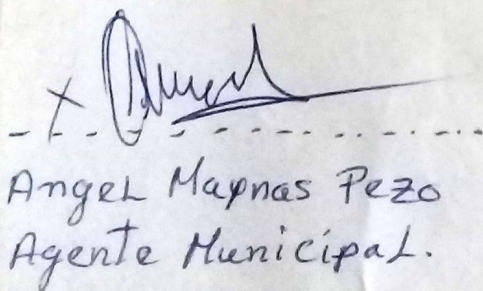 x
Angel Maynas Pezo
Agente Municipal.